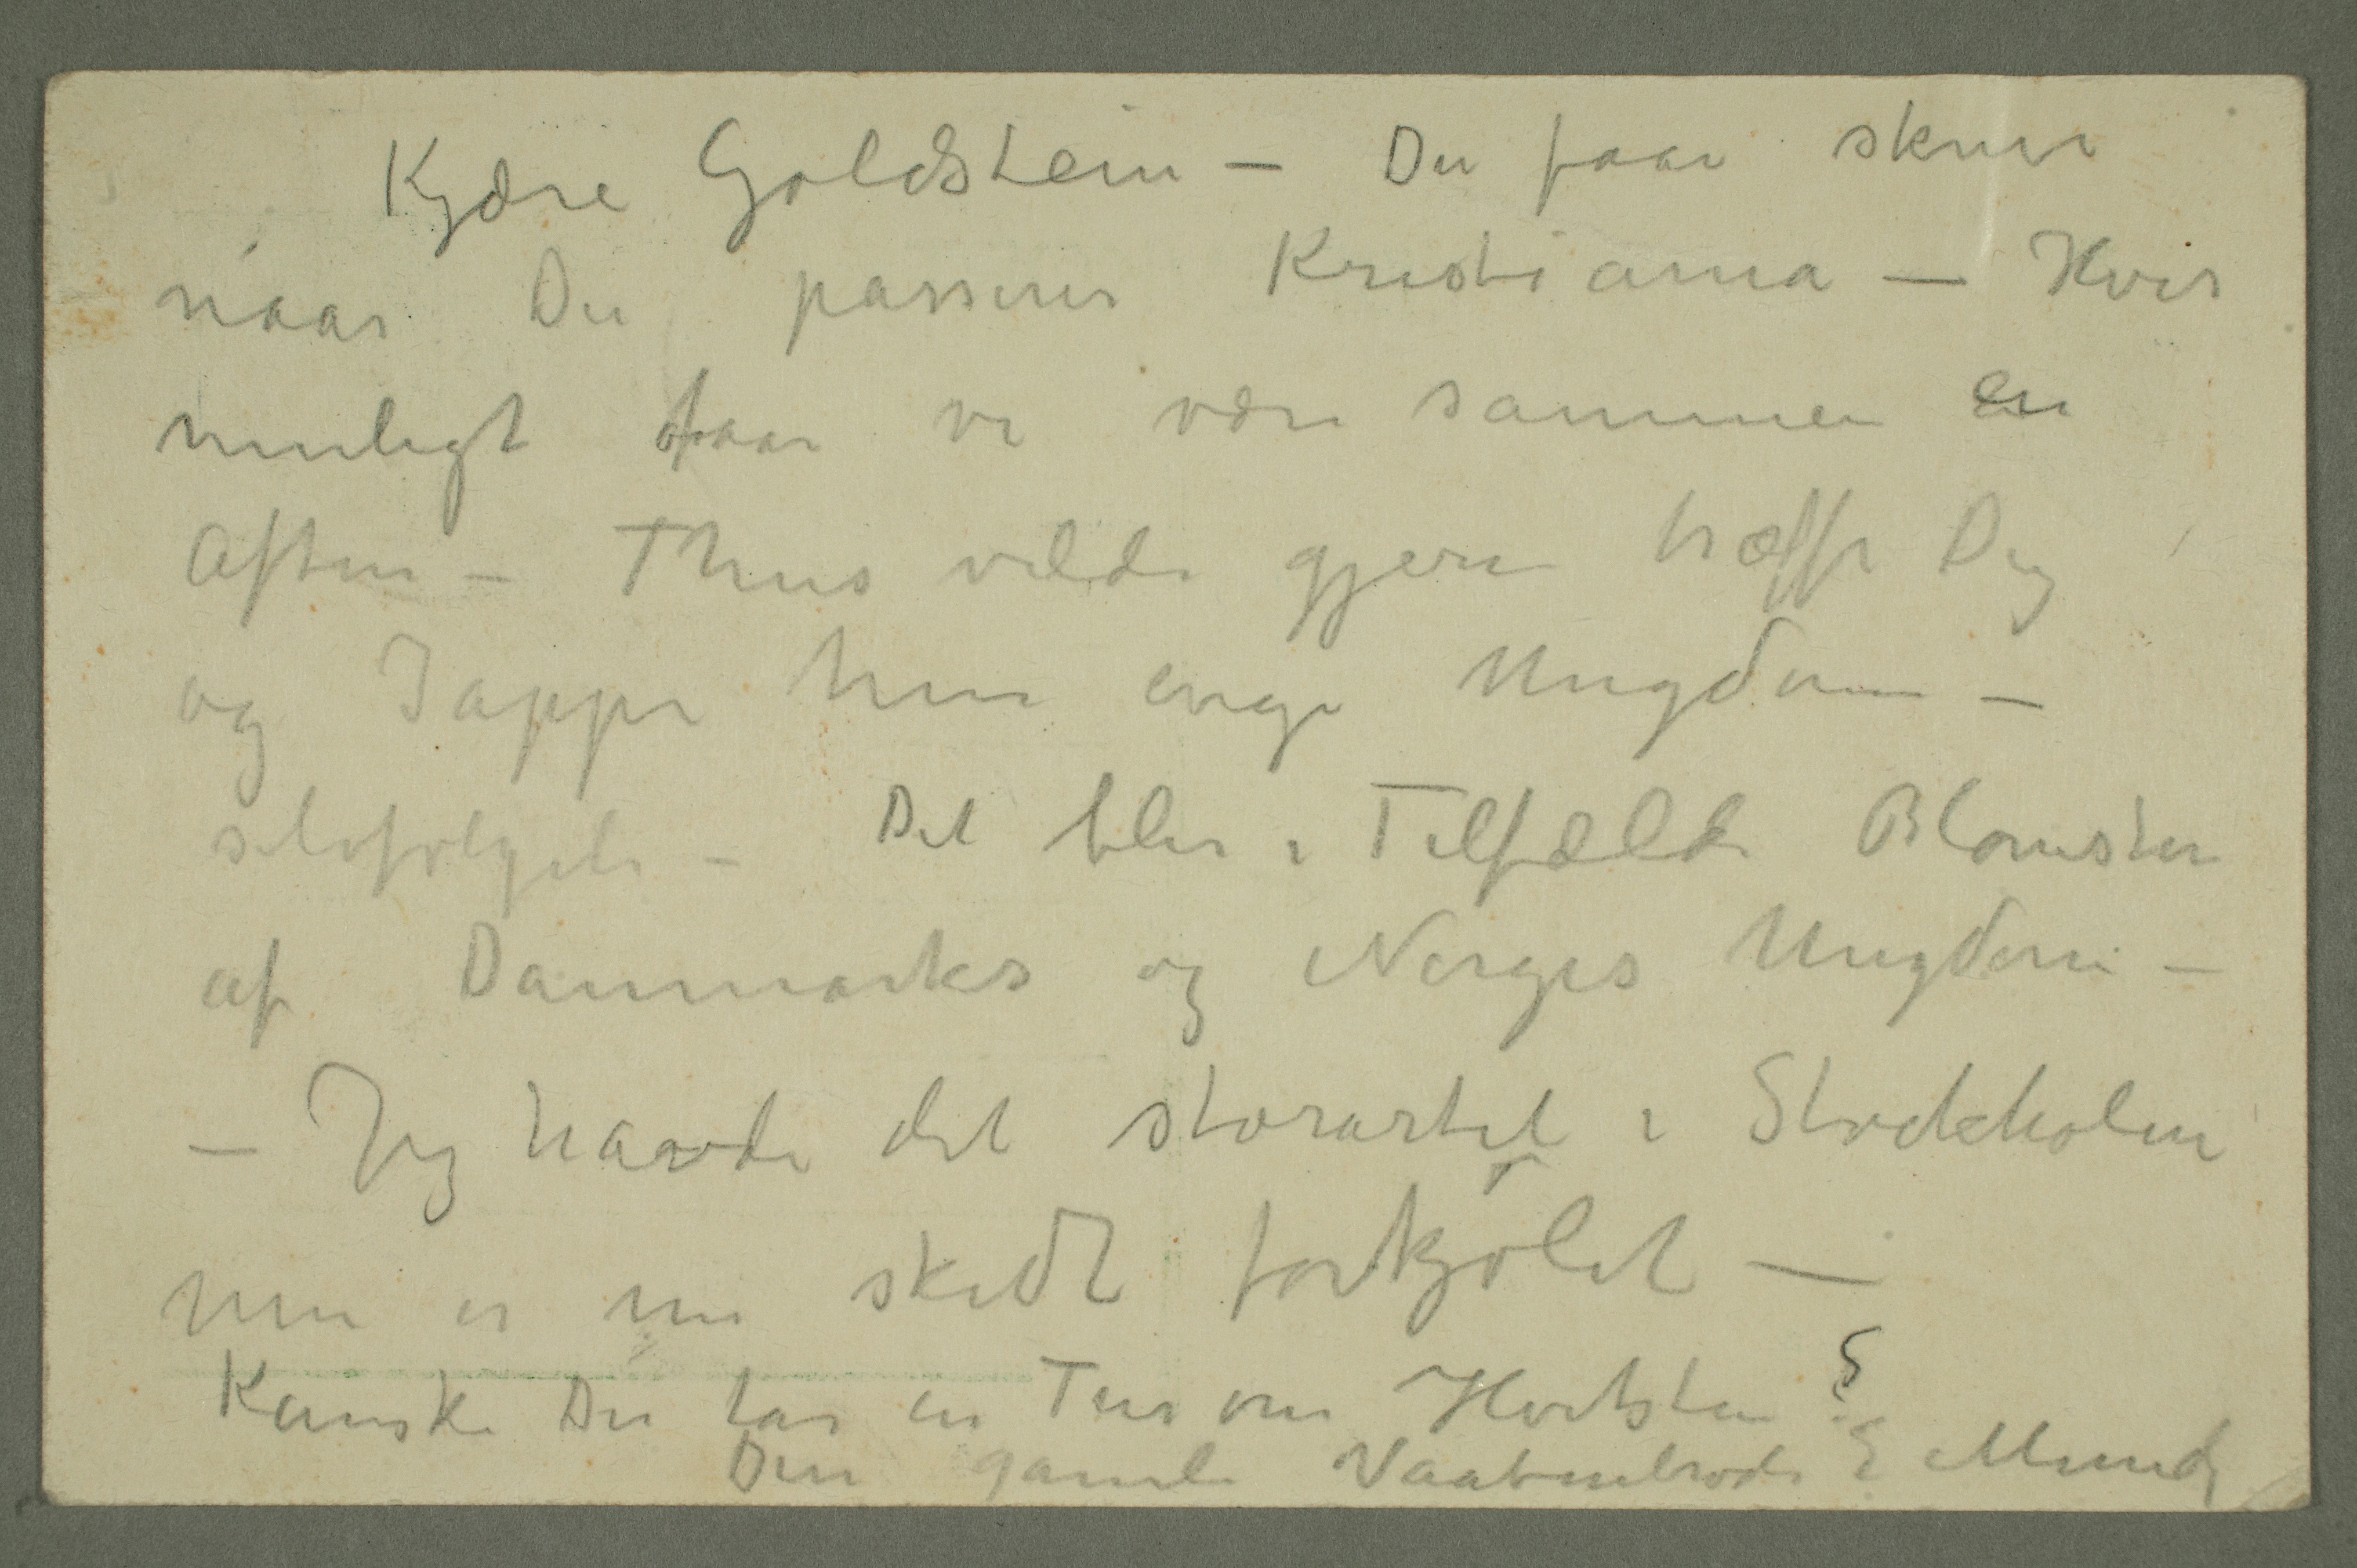 Kjære Goldstein – Du faar skrive
naar Du passerer Kristiania – Hvis
muligt faar vi være sammen en
Aften – Thiis vilde gjerne træffe Dig
og Jappe hin evige Ungdom –
selvfølgelig – Det blir i Tilfælde Blomsten
af Danmarks og Norges Ungdom –
– Jeg havde det storartet i Stockholm
men er nu skidt forkjølet –
Kanske Du tar en Tur om Hvitsten?
Din gamle Vaabenbroder E Munch